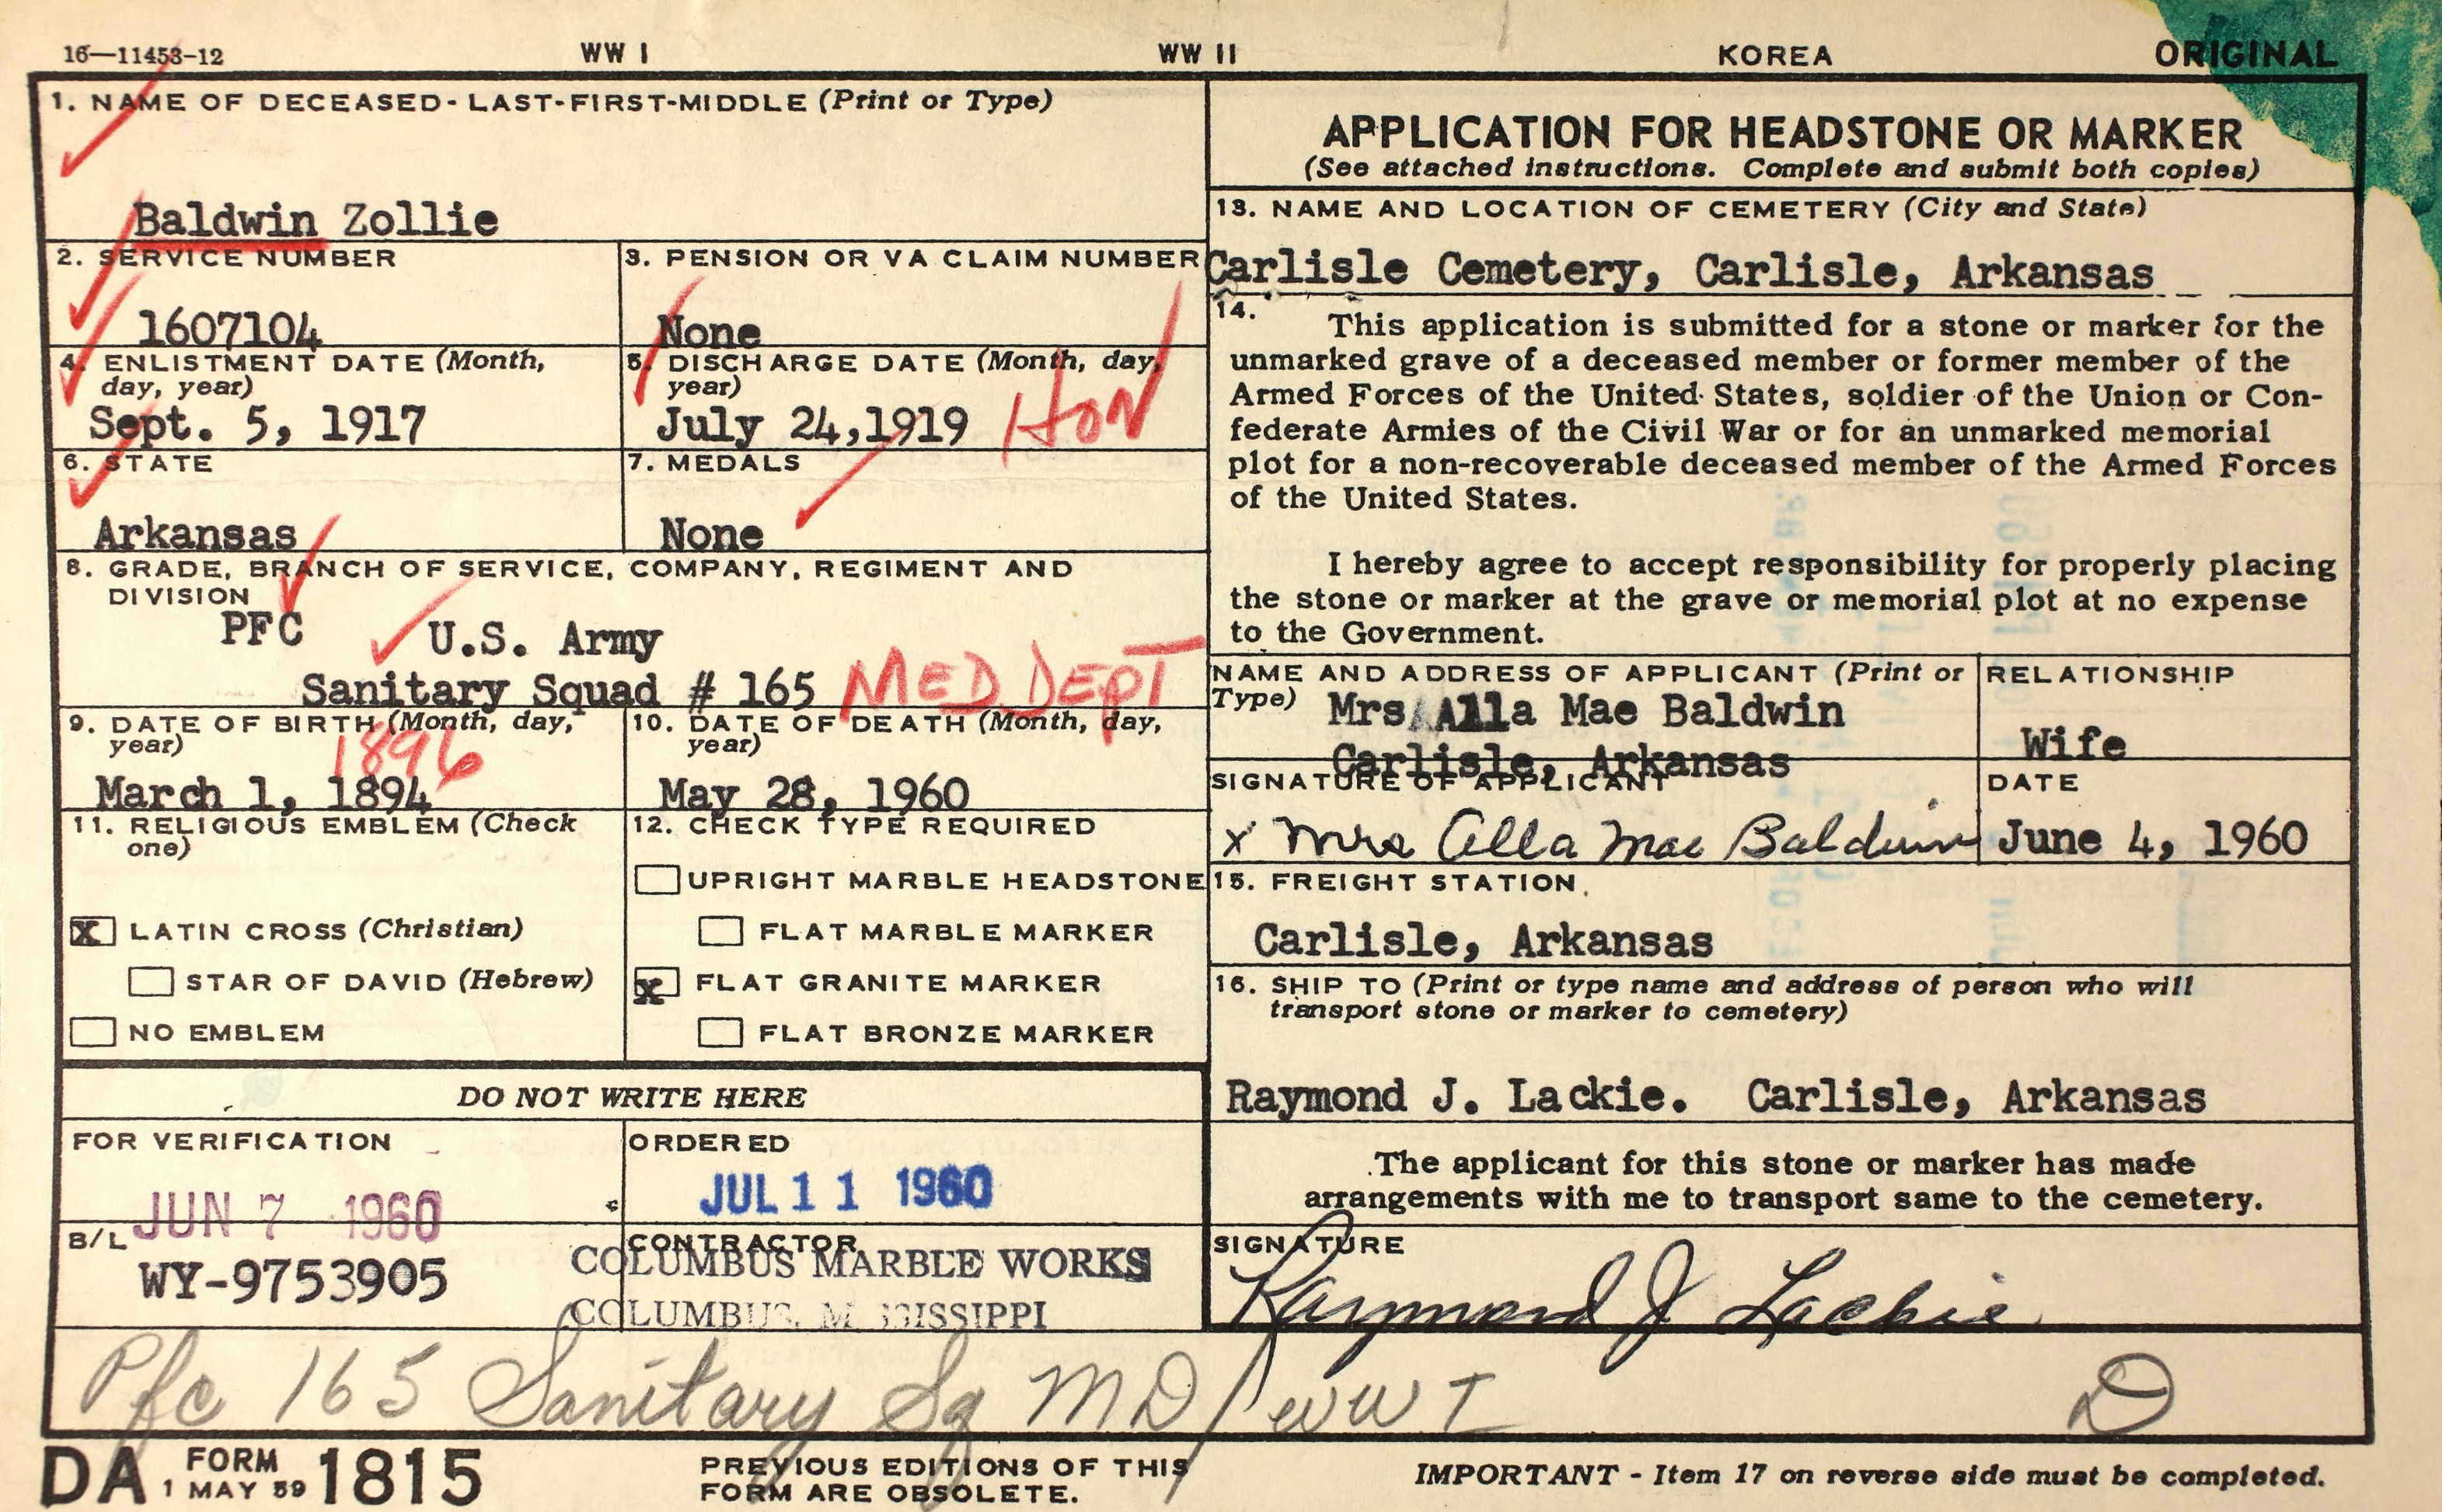 16—11453-12 WW I WW II KOREA ORIGINAL
1. NAME OF DECEASED - LAST-FIRST-MIDDLE (Print or Type)
Baldwin Zollie
2. SERVICE NUMBER
1607104
3. PENSION OR VA CLAIM NUMBER
None
4. ENLISTMENT DATE (Month,
day, year)
Sept. 5, 1917
5. DISCHARGE DATE (Month, day,
year)
July 24,1919 HON
6. STATE
Arkansas
7. MEDALS
None
8. GRADE, BRANCH OF SERVICE, COMPANY, REGIMENT AND
DIVISION
PFC U.S. Army
Sanitary Squad # 165 MED DEPT
9. DATE OF BIRTH (Month, day,
year)
1896
March 1, 1894
10. DATE OF DEATH (Month, day,
year)
May 28, 1960
11. RELIGIOUS EMBLEM (Check
one)
X LATIN CROSS (Christian)
STAR OF DAVID (Hebrew)
NO EMBLEM
12. CHECK TYPE REQUIRED
UPRIGHT MARBLE HEADSTONE
FLAT MARBLE MARKER
X FLAT GRANITE MARKER
FLAT BRONZE MARKER
DO NOT WRITE HERE
FOR VERIFICATION
JUN 7 1960
ORDERED
JUL 11 1960
B/L
WY-9753905
CONTRACTOR
COLUMBUS MARBLE WORKS
COLUMBUS, MISSISSIPPI
APPLICATION FOR HEADSTONE OR MARKER
(See attached instructions. Complete and submit both copies)
13. NAME AND LOCATION OF CEMETERY (City and State)
Carlisle Cemetery, Carlisle, Arkansas
14.
This application is submitted for a stone or marker for the
unmarked grave of a deceased member or former member of the
Armed Forces of the United States, soldier of the Union or Con-
federate Armies of the Civil War or for an unmarked memorial
plot for a non-recoverable deceased member of the Armed Forces
of the United States.
I hereby agree to accept responsibility for properly placing
the stone or marker at the grave or memorial plot at no expense
to the Government.
NAME AND ADDRESS OF APPLICANT (Print or
Type) Mrs Alla Mae Baldwin
Carlisle, Arkansas
RELATIONSHIP
Wife
SIGNATURE OF APPLICANT
x Mrs Alla Mae Baldwin
DATE
June 4, 1960
15. FREIGHT STATION
Carlisle, Arkansas
16. SHIP TO (Print or type name and address of person who will
transport stone or marker to cemetery)
Raymond J. Lackie. Carlisle, Arkansas
The applicant for this stone or marker has made
arrangements with me to transport same to the cemetery.
SIGNATURE
Raymond J Lackie
Pfc 165 Sanitary Sq MD / WW I D
DA FORM 1815
1 MAY 59
PREVIOUS EDITIONS OF THIS
FORM ARE OBSOLETE.
IMPORTANT - Item 17 on reverse side must be completed.